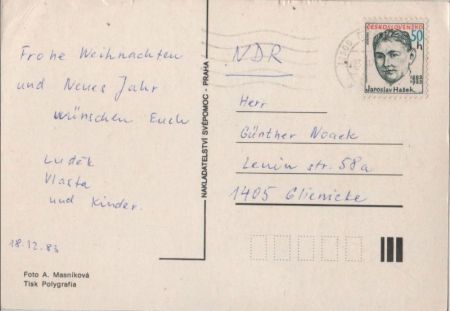 Frohe Weihnachten
und Neues Jahr
wünschen Euch
Luděk
Vlasta
und Kinder.
18.12.83
Foto A. Masníková
Tisk Polygrafia
NAKLADATELSTVÍ SVÉPOMOC - PRAHA
ČESKOSLOVENSKO
50 h
1883
Jaroslav Hašek
NDR
Herr
Günther Noack
Lenin str. 58a
1405 Glienicke